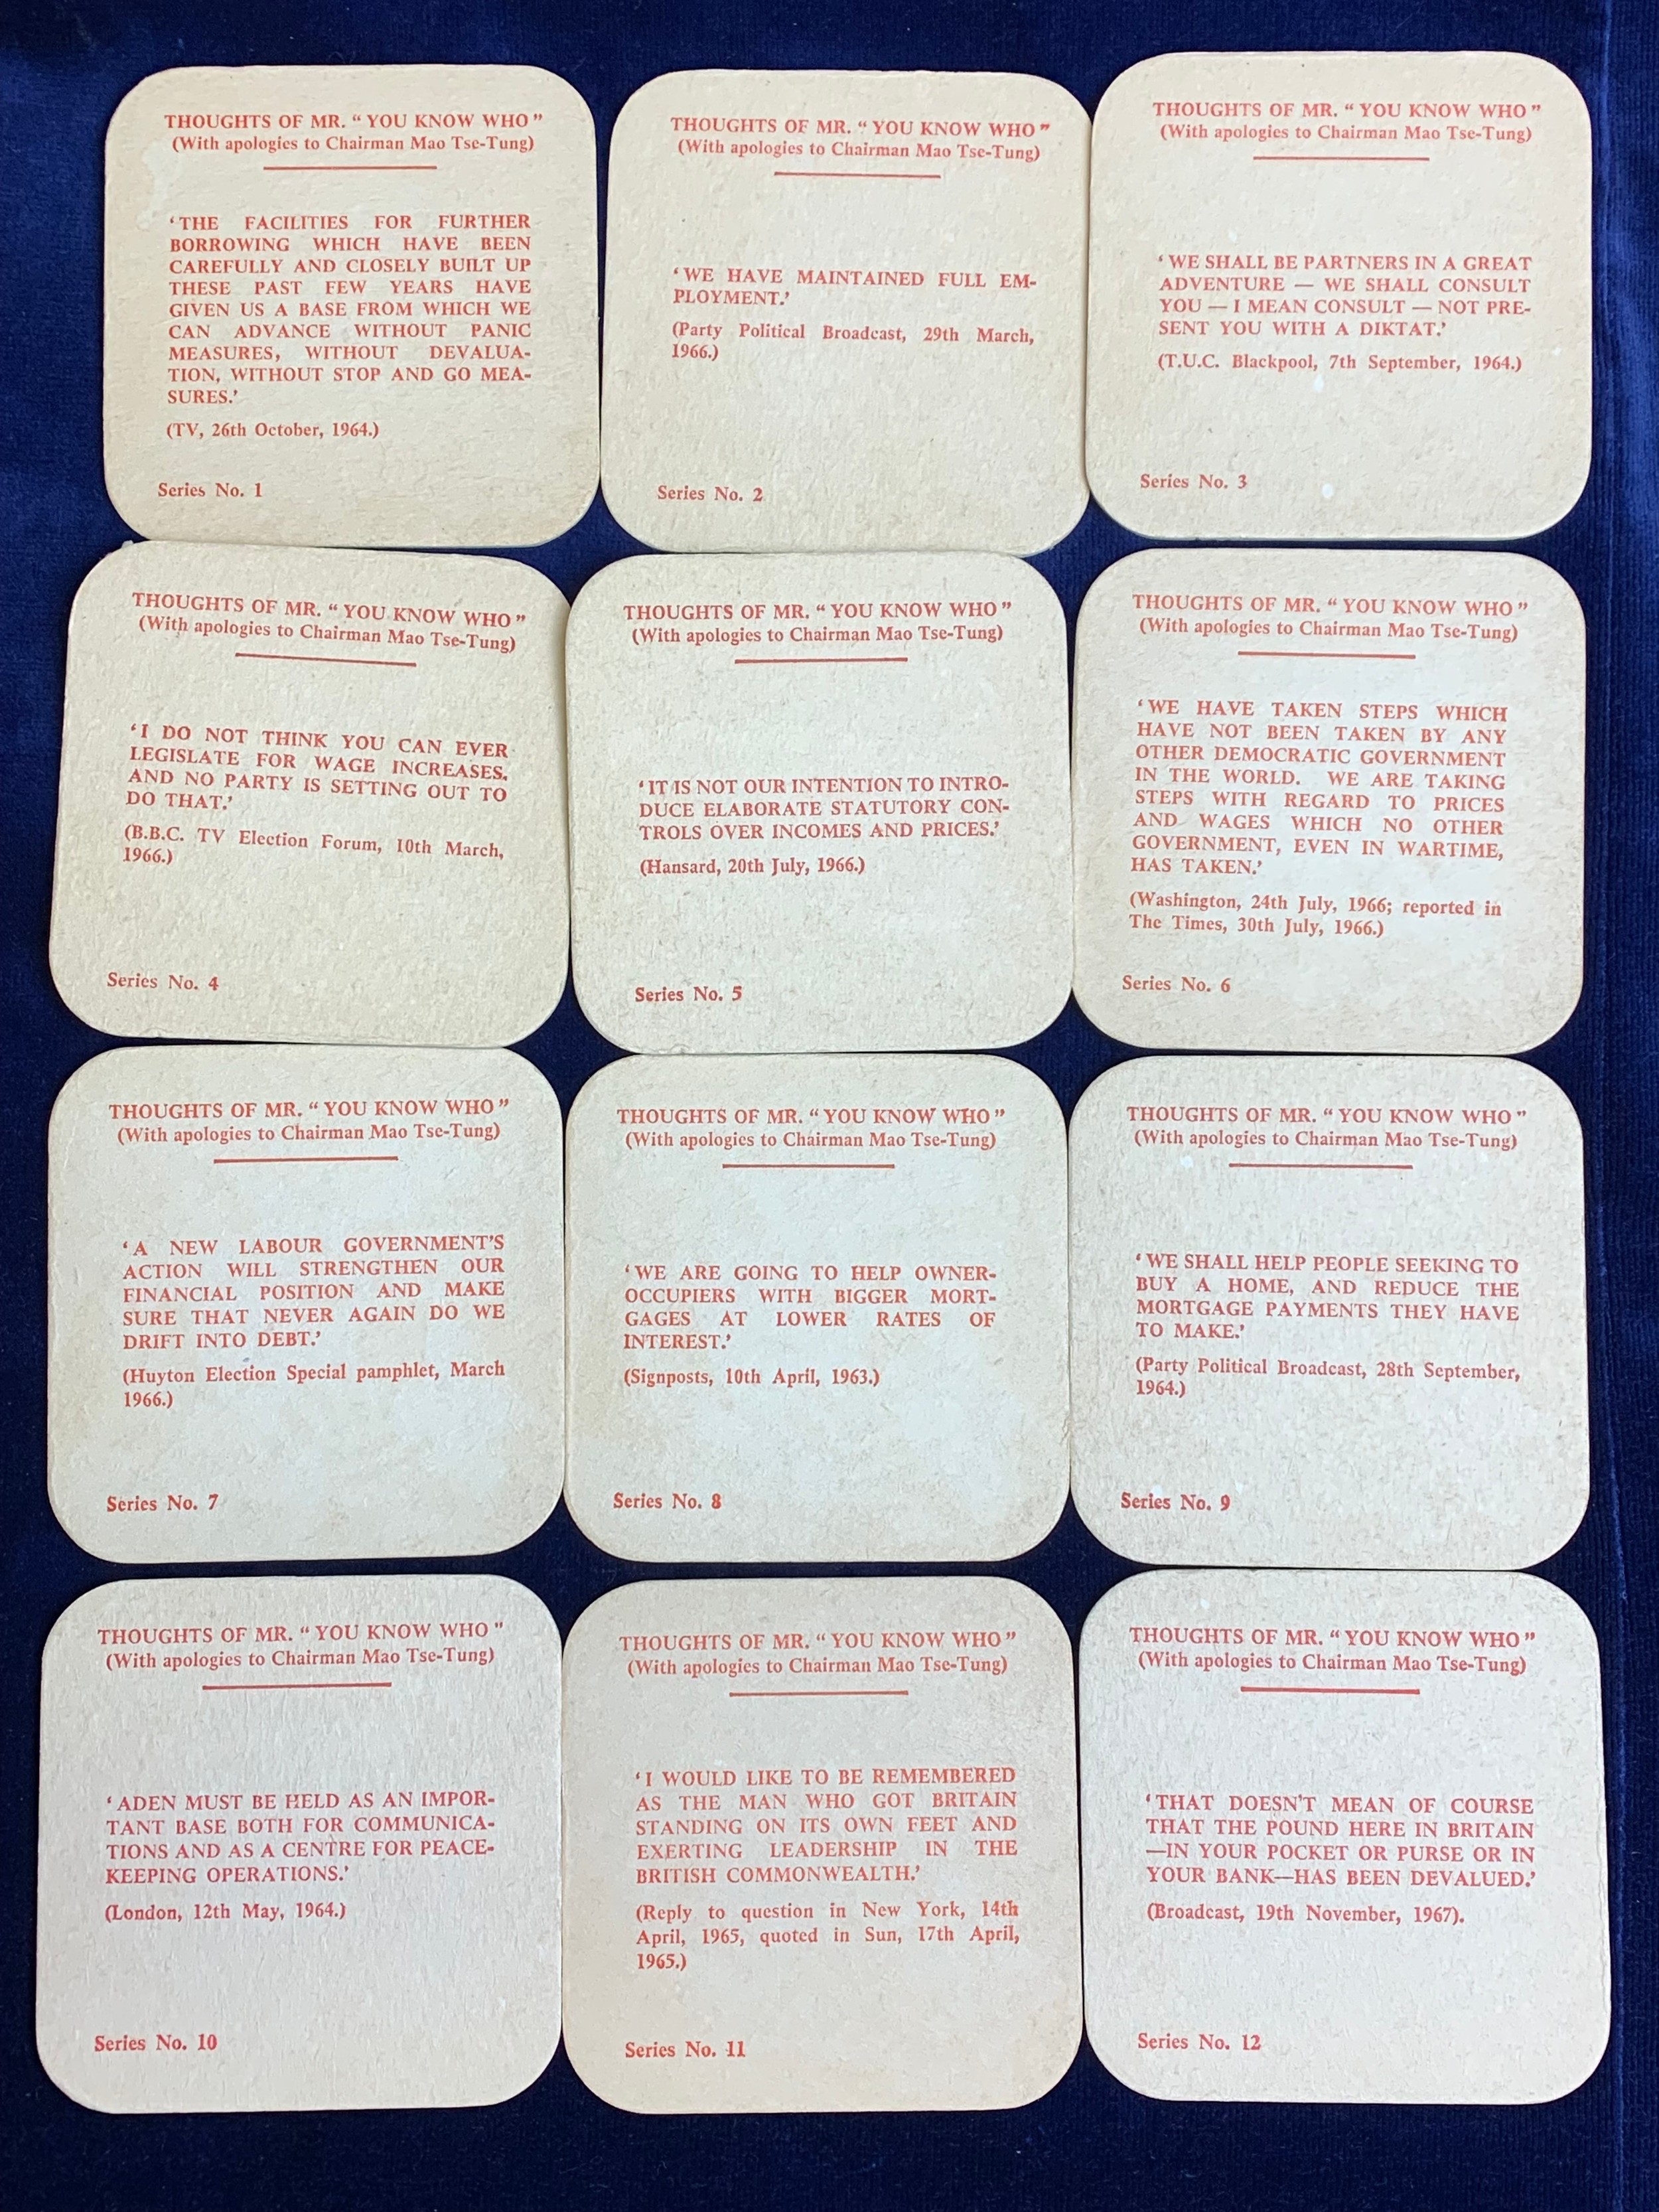 THOUGHTS OF MR. “ YOU KNOW WHO ”
(With apologies to Chairman Mao Tse-Tung)
‘ THE FACILITIES FOR FURTHER
BORROWING WHICH HAVE BEEN
CAREFULLY AND CLOSELY BUILT UP
THESE PAST FEW YEARS HAVE
GIVEN US A BASE FROM WHICH WE
CAN ADVANCE WITHOUT PANIC
MEASURES, WITHOUT DEVALUA-
TION, WITHOUT STOP AND GO MEA-
SURES.’
(TV, 26th October, 1964.)
Series No. 1
THOUGHTS OF MR. “ YOU KNOW WHO ”
(With apologies to Chairman Mao Tse-Tung)
‘ WE HAVE MAINTAINED FULL EM-
PLOYMENT.’
(Party Political Broadcast, 29th March,
1966.)
Series No. 2
THOUGHTS OF MR. “ YOU KNOW WHO ”
(With apologies to Chairman Mao Tse-Tung)
‘ WE SHALL BE PARTNERS IN A GREAT
ADVENTURE — WE SHALL CONSULT
YOU — I MEAN CONSULT — NOT PRE-
SENT YOU WITH A DIKTAT.’
(T.U.C. Blackpool, 7th September, 1964.)
Series No. 3
THOUGHTS OF MR. “ YOU KNOW WHO ”
(With apologies to Chairman Mao Tse-Tung)
‘ I DO NOT THINK YOU CAN EVER
LEGISLATE FOR WAGE INCREASES,
AND NO PARTY IS SETTING OUT TO
DO THAT.’
(B.B.C. TV Election Forum, 10th March,
1966.)
Series No. 4
THOUGHTS OF MR. “ YOU KNOW WHO ”
(With apologies to Chairman Mao Tse-Tung)
‘ IT IS NOT OUR INTENTION TO INTRO-
DUCE ELABORATE STATUTORY CON-
TROLS OVER INCOMES AND PRICES.’
(Hansard, 20th July, 1966.)
Series No. 5
THOUGHTS OF MR. “ YOU KNOW WHO ”
(With apologies to Chairman Mao Tse-Tung)
‘ WE HAVE TAKEN STEPS WHICH
HAVE NOT BEEN TAKEN BY ANY
OTHER DEMOCRATIC GOVERNMENT
IN THE WORLD. WE ARE TAKING
STEPS WITH REGARD TO PRICES
AND WAGES WHICH NO OTHER
GOVERNMENT, EVEN IN WARTIME,
HAS TAKEN.’
(Washington, 24th July, 1966; reported in
The Times, 30th July, 1966.)
Series No. 6
THOUGHTS OF MR. “ YOU KNOW WHO ”
(With apologies to Chairman Mao Tse-Tung)
‘ A NEW LABOUR GOVERNMENT’S
ACTION WILL STRENGTHEN OUR
FINANCIAL POSITION AND MAKE
SURE THAT NEVER AGAIN DO WE
DRIFT INTO DEBT.’
(Huyton Election Special pamphlet, March
1966.)
Series No. 7
THOUGHTS OF MR. “ YOU KNOW WHO ”
(With apologies to Chairman Mao Tse-Tung)
‘ WE ARE GOING TO HELP OWNER-
OCCUPIERS WITH BIGGER MORT-
GAGES AT LOWER RATES OF
INTEREST.’
(Signposts, 10th April, 1963.)
Series No. 8
THOUGHTS OF MR. “ YOU KNOW WHO ”
(With apologies to Chairman Mao Tse-Tung)
‘ WE SHALL HELP PEOPLE SEEKING TO
BUY A HOME, AND REDUCE THE
MORTGAGE PAYMENTS THEY HAVE
TO MAKE.’
(Party Political Broadcast, 28th September,
1964.)
Series No. 9
THOUGHTS OF MR. “ YOU KNOW WHO ”
(With apologies to Chairman Mao Tse-Tung)
‘ ADEN MUST BE HELD AS AN IMPOR-
TANT BASE BOTH FOR COMMUNICA-
TIONS AND AS A CENTRE FOR PEACE-
KEEPING OPERATIONS.’
(London, 12th May, 1964.)
Series No. 10
THOUGHTS OF MR. “ YOU KNOW WHO ”
(With apologies to Chairman Mao Tse-Tung)
‘ I WOULD LIKE TO BE REMEMBERED
AS THE MAN WHO GOT BRITAIN
STANDING ON ITS OWN FEET AND
EXERTING LEADERSHIP IN THE
BRITISH COMMONWEALTH.’
(Reply to question in New York, 14th
April, 1965, quoted in Sun, 17th April,
1965.)
Series No. 11
THOUGHTS OF MR. “ YOU KNOW WHO ”
(With apologies to Chairman Mao Tse-Tung)
‘ THAT DOESN’T MEAN OF COURSE
THAT THE POUND HERE IN BRITAIN
—IN YOUR POCKET OR PURSE OR IN
YOUR BANK—HAS BEEN DEVALUED.’
(Broadcast, 19th November, 1967).
Series No. 12